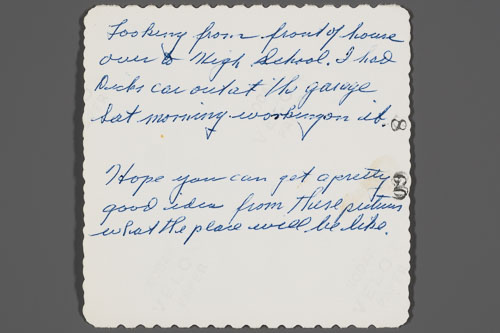 Looking from front of house
over to High School. I had
Dicks car out at the garage
Sat morning working on it.
8
Hope you can get a pretty
good idea from these pictures
what the place will be like.
VELOX
PAPER